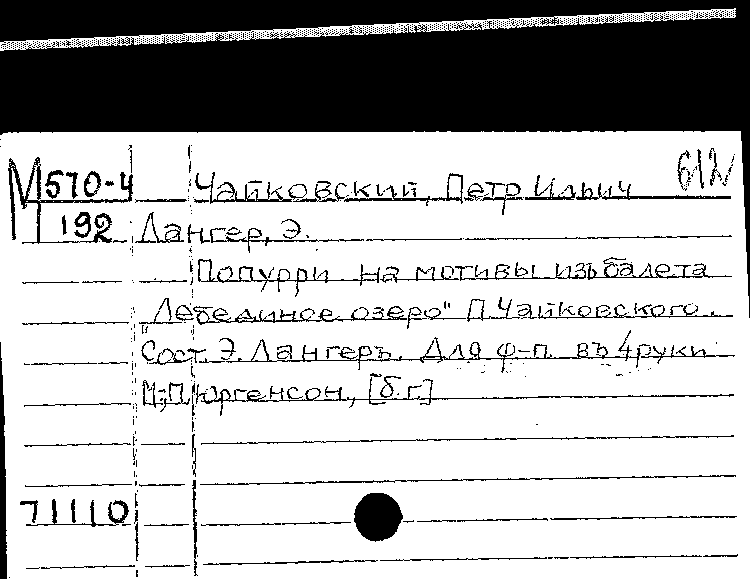 М570-4 Чайковский, Петр Ильич 612
192 Лангер, Э.
Попурри на мотивы изъ балета
"Лебединое озеро" П. Чайковского.
Сост. Э. Лангеръ. Для ф-п. въ 4 руки
М.; П. Юргенсон, [б.г.]
71110